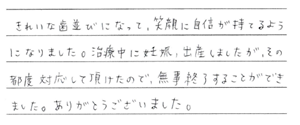 きれいな歯並びになって、笑顔に自信が持てるよう
になりました。治療中に妊娠、出産しましたが、その
都度対応して頂けたので、無事終了することができ
ました。ありがとうございました。